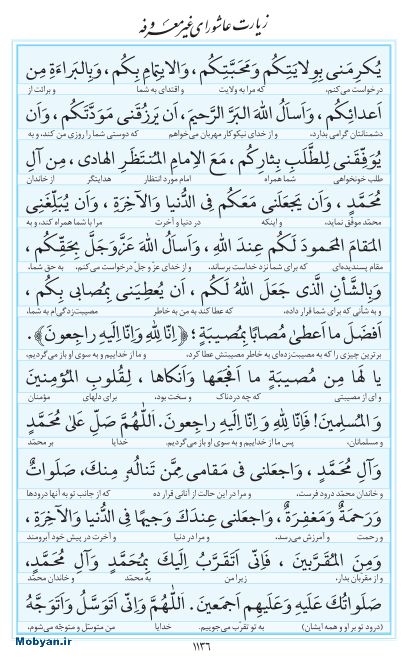 زیارت عاشورای غیر معروفه
یُکرِمَنی بِوِلایَتِکُم وَمَحَبَّتِکُم ، وَالایتِمامِ بِکُم ، وَبِالبَراءَةِ مِن
درخواست می‌کنم، که مرا به ولایت و اقتدای به شما و برائت از
اَعدائِکُم ، وَاَسأَلُ اللهَ البَرَّ الرَّحیمَ ، اَن یَرزُقَنی مَوَدَّتَکُم ، وَاَن
دشمنانتان گرامی بدارد، و از خدای نیکوکار مهربان می‌خواهم که دوستی شما را روزی من کند، و به
یُوَفِّقَنی لِلطَّلَبِ بِثارِکُم ، مَعَ الاِمامِ المُنتَظَرِ الهادی ، مِن آلِ
طلب خونخواهی شما همراه امام مورد انتظار هدایتگر از خاندان
مُحَمَّدٍ ، وَاَن یَجعَلَنی مَعَکُم فِی الدُّنیا وَالآخِرَةِ ، وَاَن یُبَلِّغَنِی
محمّد موفق نماید، و اینکه در دنیا و آخرت مرا با شما همراه کند، و به
المَقامَ المَحمودَ لَکُم عِندَ اللهِ ، وَاَسأَلُ اللهَ عَزَّوَجَلَّ بِحَقِّکُم ،
مقام پسندیده‌ای که برای شما نزد خداست برساند، و از خدای عزّ و جلّ درخواست می‌کنم، به حق شما،
وَبِالشَّأنِ الَّذی جَعَلَ اللهُ لَکُم ، اَن یُعطِیَنی بِمُصابی بِکُم ،
و به شأنی که برای شما قرار داده، که عطا کند به من به خاطر مصیبت‌زدگی‌ام به شما،
اَفضَلَ ما اَعطیٰ مُصابًا بِمُصیبَةٍ ؛ ﴿اِنّا لِلّهِ وَاِنّا اِلَیهِ راجِعونَ﴾.
برترین چیزی را که به مصیبت‌زده‌ای به خاطر مصیبتش عطا کرد، و ما از خداییم و به سوی او باز می‌گردیم،
یا لَها مِن مُصیبَةٍ ما اَفجَعَها وَاَنکاها ، لِقُلوبِ المُؤمِنینَ
و ای از مصیبتی که چه دردناک و سخت بود، برای دلهای مؤمنان
وَ المُسلِمینَ! فَاِنّا لِلّهِ وَ اِنّا اِلَیهِ راجِعونَ. اَللّهُمَّ صَلِّ عَلیٰ مُحَمَّدٍ
و مسلمانان. پس ما از خداییم و به سوی او باز می‌گردیم. خدایا بر محمّد
وَآلِ مُحَمَّدٍ ، وَاجعَلنی فی مَقامی مِمَّن تَنالُهُ مِنکَ صَلَواتٌ
و خاندان محمّد درود فرست، و مرا در این حالت از آنانی قرار ده که از جانب تو به آنها درودها
وَرَحمَةٌ وَمَغفِرَةٌ ، وَاجعَلنی عِندَکَ وَجیهًا فِی الدُّنیا وَالآخِرَةِ ،
و رحمت و آمرزش می‌رسد، و مرا در دنیا و آخرت در پیش خود آبرومند
وَمِنَ المُقَرَّبینَ ، فَاِنّی اَتَقَرَّبُ اِلَیکَ بِمُحَمَّدٍ وَآلِ مُحَمَّدٍ،
و از مقربان بدار، زیرا من به محمّد و خاندان محمّد
صَلَواتُکَ عَلَیهِ وَعَلَیهِم اَجمَعینَ. اَللّهُمَّ وَاِنّی اَتَوَسَّلُ وَاَتَوَجَّهُ
(درود تو بر او و همه ایشان) به تو تقرّب می‌جویم. خدایا من متوسّل و متوجّه می‌شوم،
۱۱۳۶
Mobyan.ir